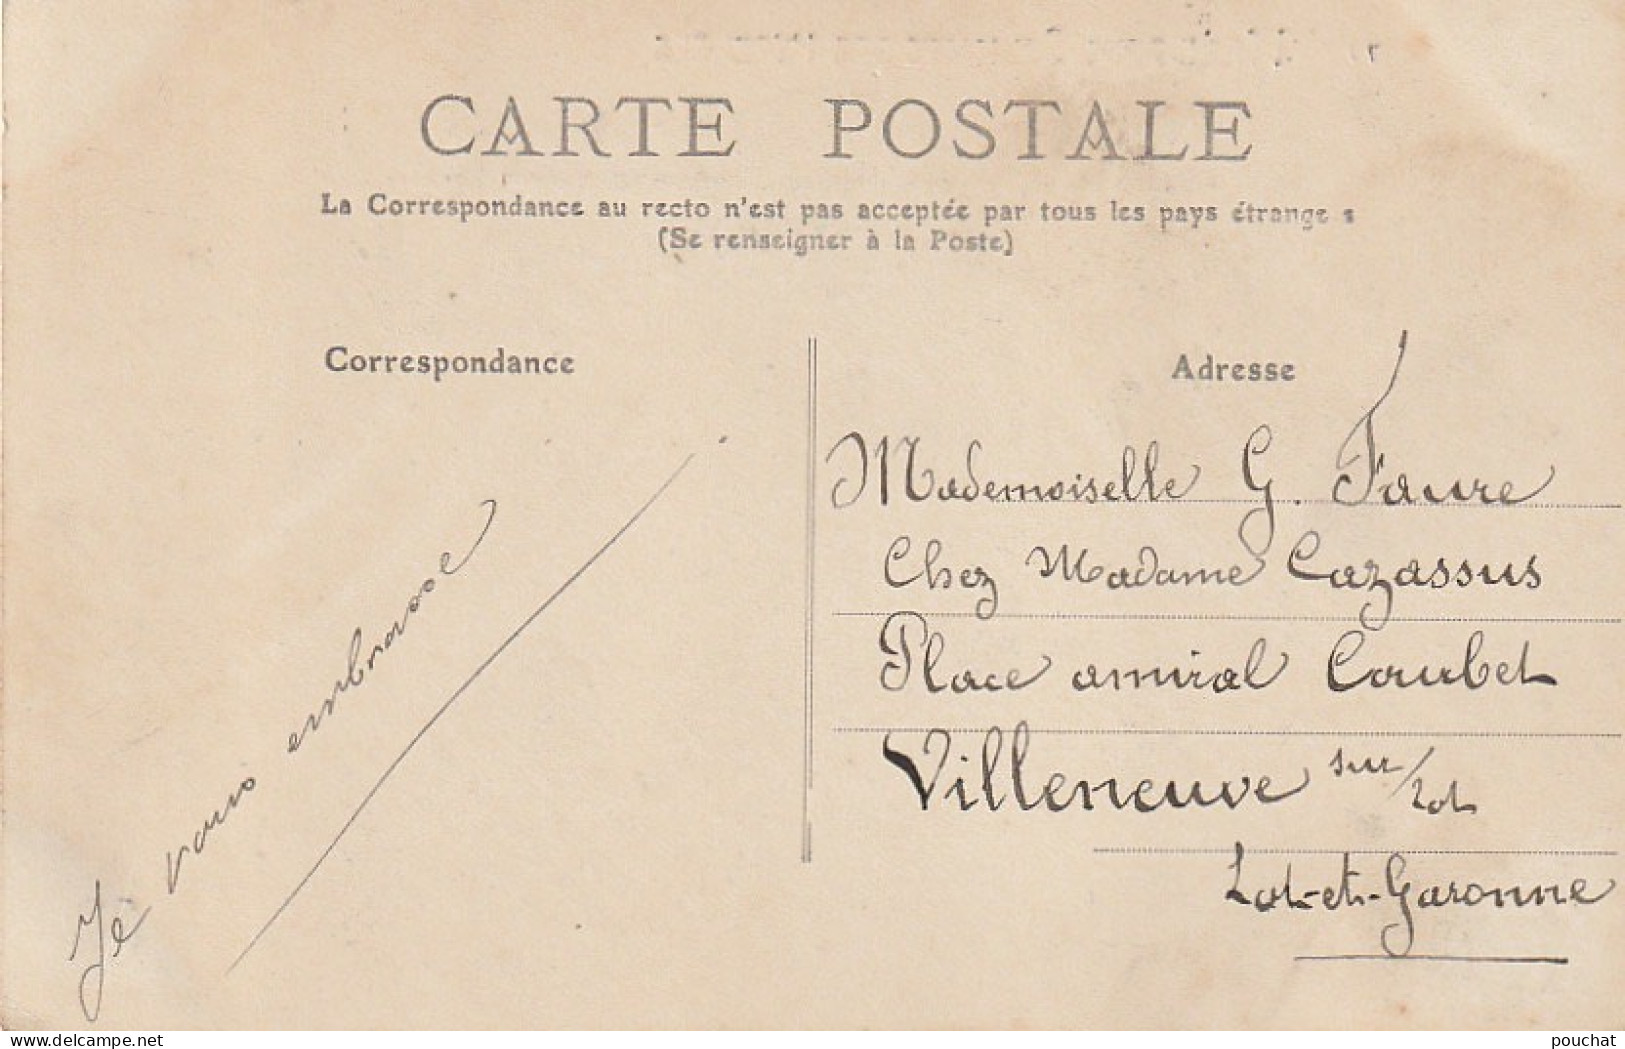 CARTE POSTALE
La Correspondance au recto n'est pas acceptée par tous les pays étrange s
(Se renseigner à la Poste)
Correspondance
Je vous embrasse
Adresse
Mademoiselle G. Faure
Chez Madame Cazassus
Place amiral Courbet
Villeneuve sur/Lot
Lot-et-Garonne
www.delcampe.net
pouchat